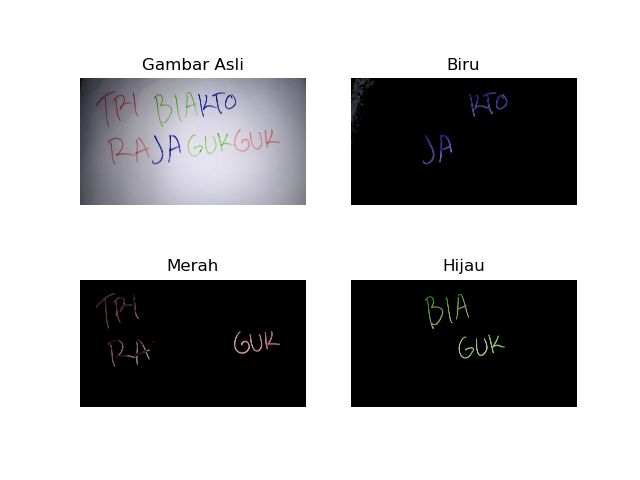 Gambar Asli
TRI BIAKTO
RAJAGUKGUK
Biru
KTO
JA
Merah
TRI
RA GUK
Hijau
BIA
GUK